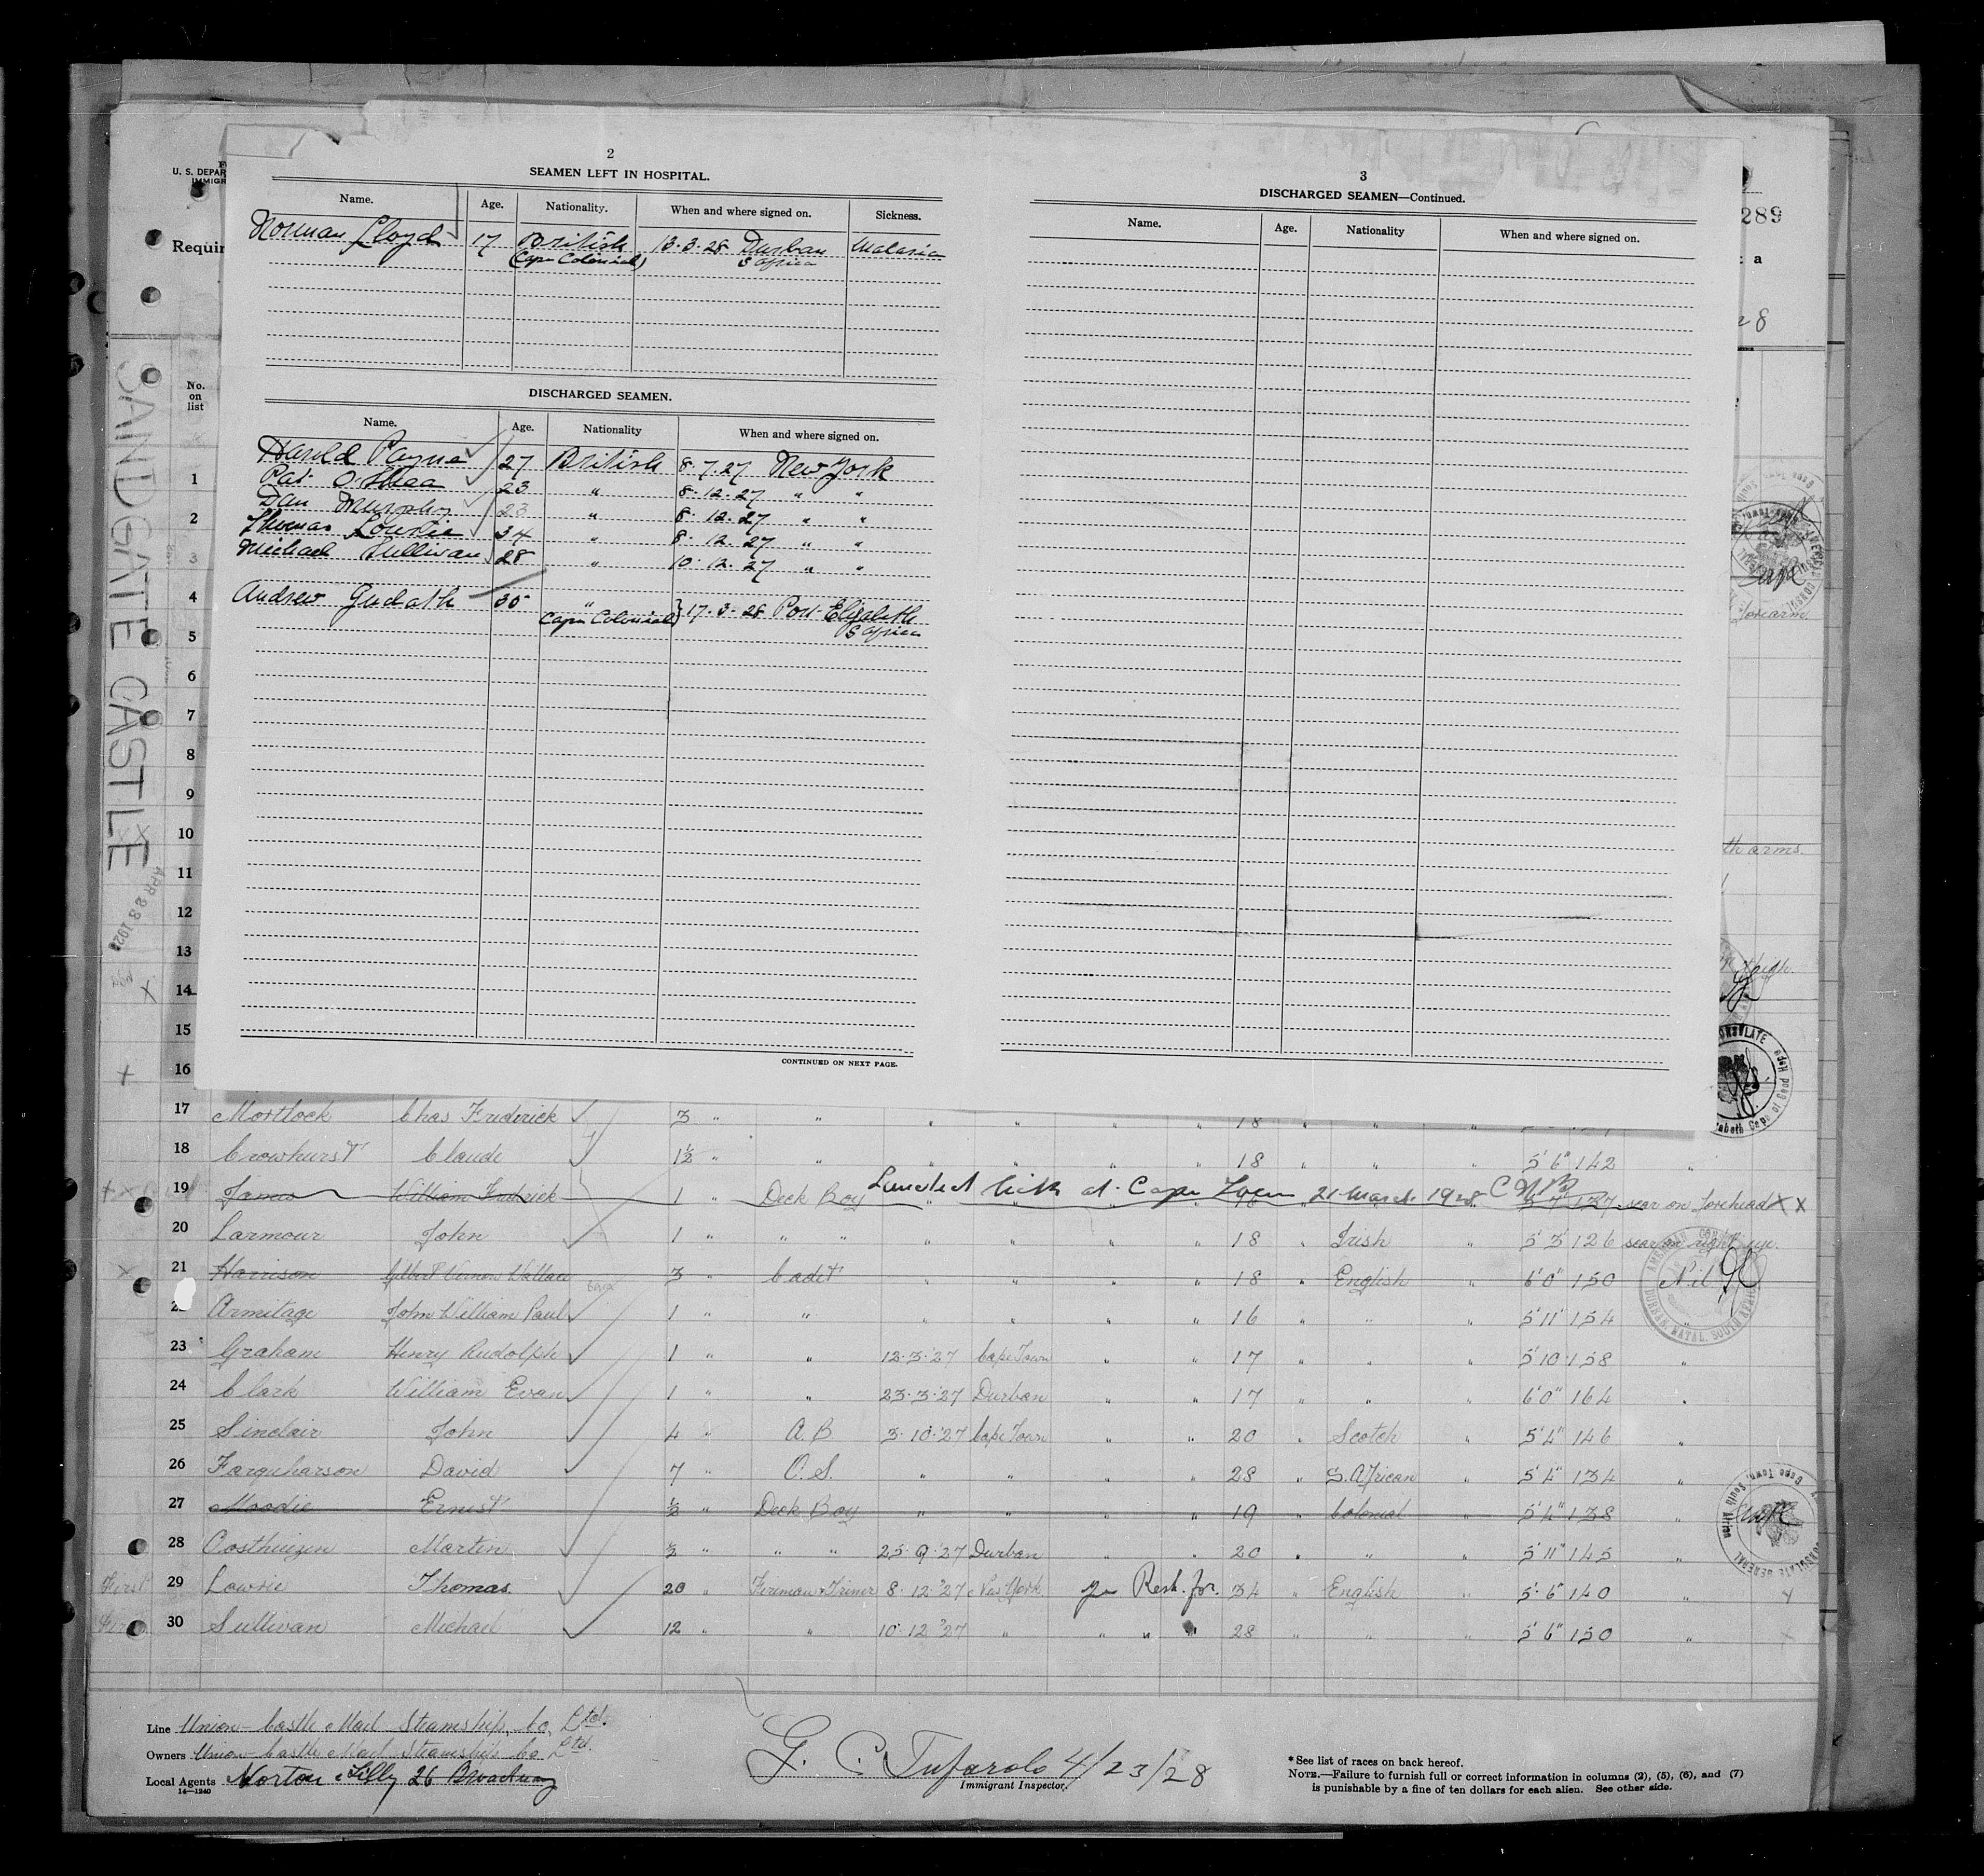 2
SEAMEN LEFT IN HOSPITAL.
Name. Age. Nationality. When and where signed on. Sickness.
Norman Lloyd 17 British 13.3.28 Durban Malaria
(Cape Colonial) S Africa
DISCHARGED SEAMEN.
Name. Age. Nationality When and where signed on.
Harold Payne 27 British 8.7.27 New York
Pat O'Shea 23 " 8.12.27 " "
Dan Murphy 23 " 8.12.27 " "
Thomas Lowrie 34 " 8.12.27 " "
Michael Sullivan 28 " 10.12.27 " "
Andrew Gudath 35 " 17.3.28 Port Elizabeth
Cape Colonial) S Africa
CONTINUED ON NEXT PAGE.
3
DISCHARGED SEAMEN—Continued.
Name. Age. Nationality When and where signed on.
U. S. DEPAR
IMMIGR
Requir
289
a
28
No.
on
list
SANDGATE CASTLE
APR 23 1928
1
2
3
4
5
6
7
8
9
10
11
12
13
14
15
16
forearm.
th arms.
thigh.
17 Mortlock Chas Frederick 3 " " " " " " 18 " " "
18 Crowhurst Claude 1½ " " " " " " 18 " " " 5'6" 142 "
19 James William Fredrick 1 " Deck Boy Landed sick at Cape Town 21 March 1928 5'7" 137 scar on forehead X X
20 Larmour John 1 " " " " " " " 18 " Irish " 5'3" 126 scar on right eye.
21 Harrison Gilbert Vernon Wallace 3 " Cadet " " " " 18 " English " 6'0" 150 Nil
Armitage John William Paul 1 " " " " " " 16 " " " 5'11" 154 "
23 Graham Henry Rudolph 1 " " 12.3.27 Cape Town " " 17 " " " 5'10 158 "
24 Clark William Evan 1 " " 23.3.27 Durban " " 17 " " " 6'0" 164 "
25 Sinclair John 4 " A.B. 3.10.27 Cape Town " " 20 " Scotch " 5'4" 146 "
26 Farquharson David 7 " O.S. " " " " 28 " S. African " 5'4" 134 "
27 Moodie Ernest ½ " Deck Boy " " " " 19 " Colonial " 5'4" 138 "
28 Oosthuizen Martin ½ " " " 25.9.27 Durban " " 20 " " " 5'11" 145 "
First 29 Lowrie Thomas 20 " Fireman & Trimer 8.12.27 New York. Resh. for. 34 " English " 5'6" 140 "
30 Sullivan Michael 12 " " 10.12.27 " " " " 28 " " " 5'6" 150 "
Line Union-Castle Mail Steamship Co, Ltd.
Owners Union-Castle Mail Steamship Co Ltd.
Local Agents Norton Lilly 26 Broadway
14—1240
G. C. Tufarolo 4/23/28
Immigrant Inspector.
*See list of races on back hereof.
NOTE.—Failure to furnish full or correct information in columns (2), (5), (6), and (7)
is punishable by a fine of ten dollars for each alien. See other side.